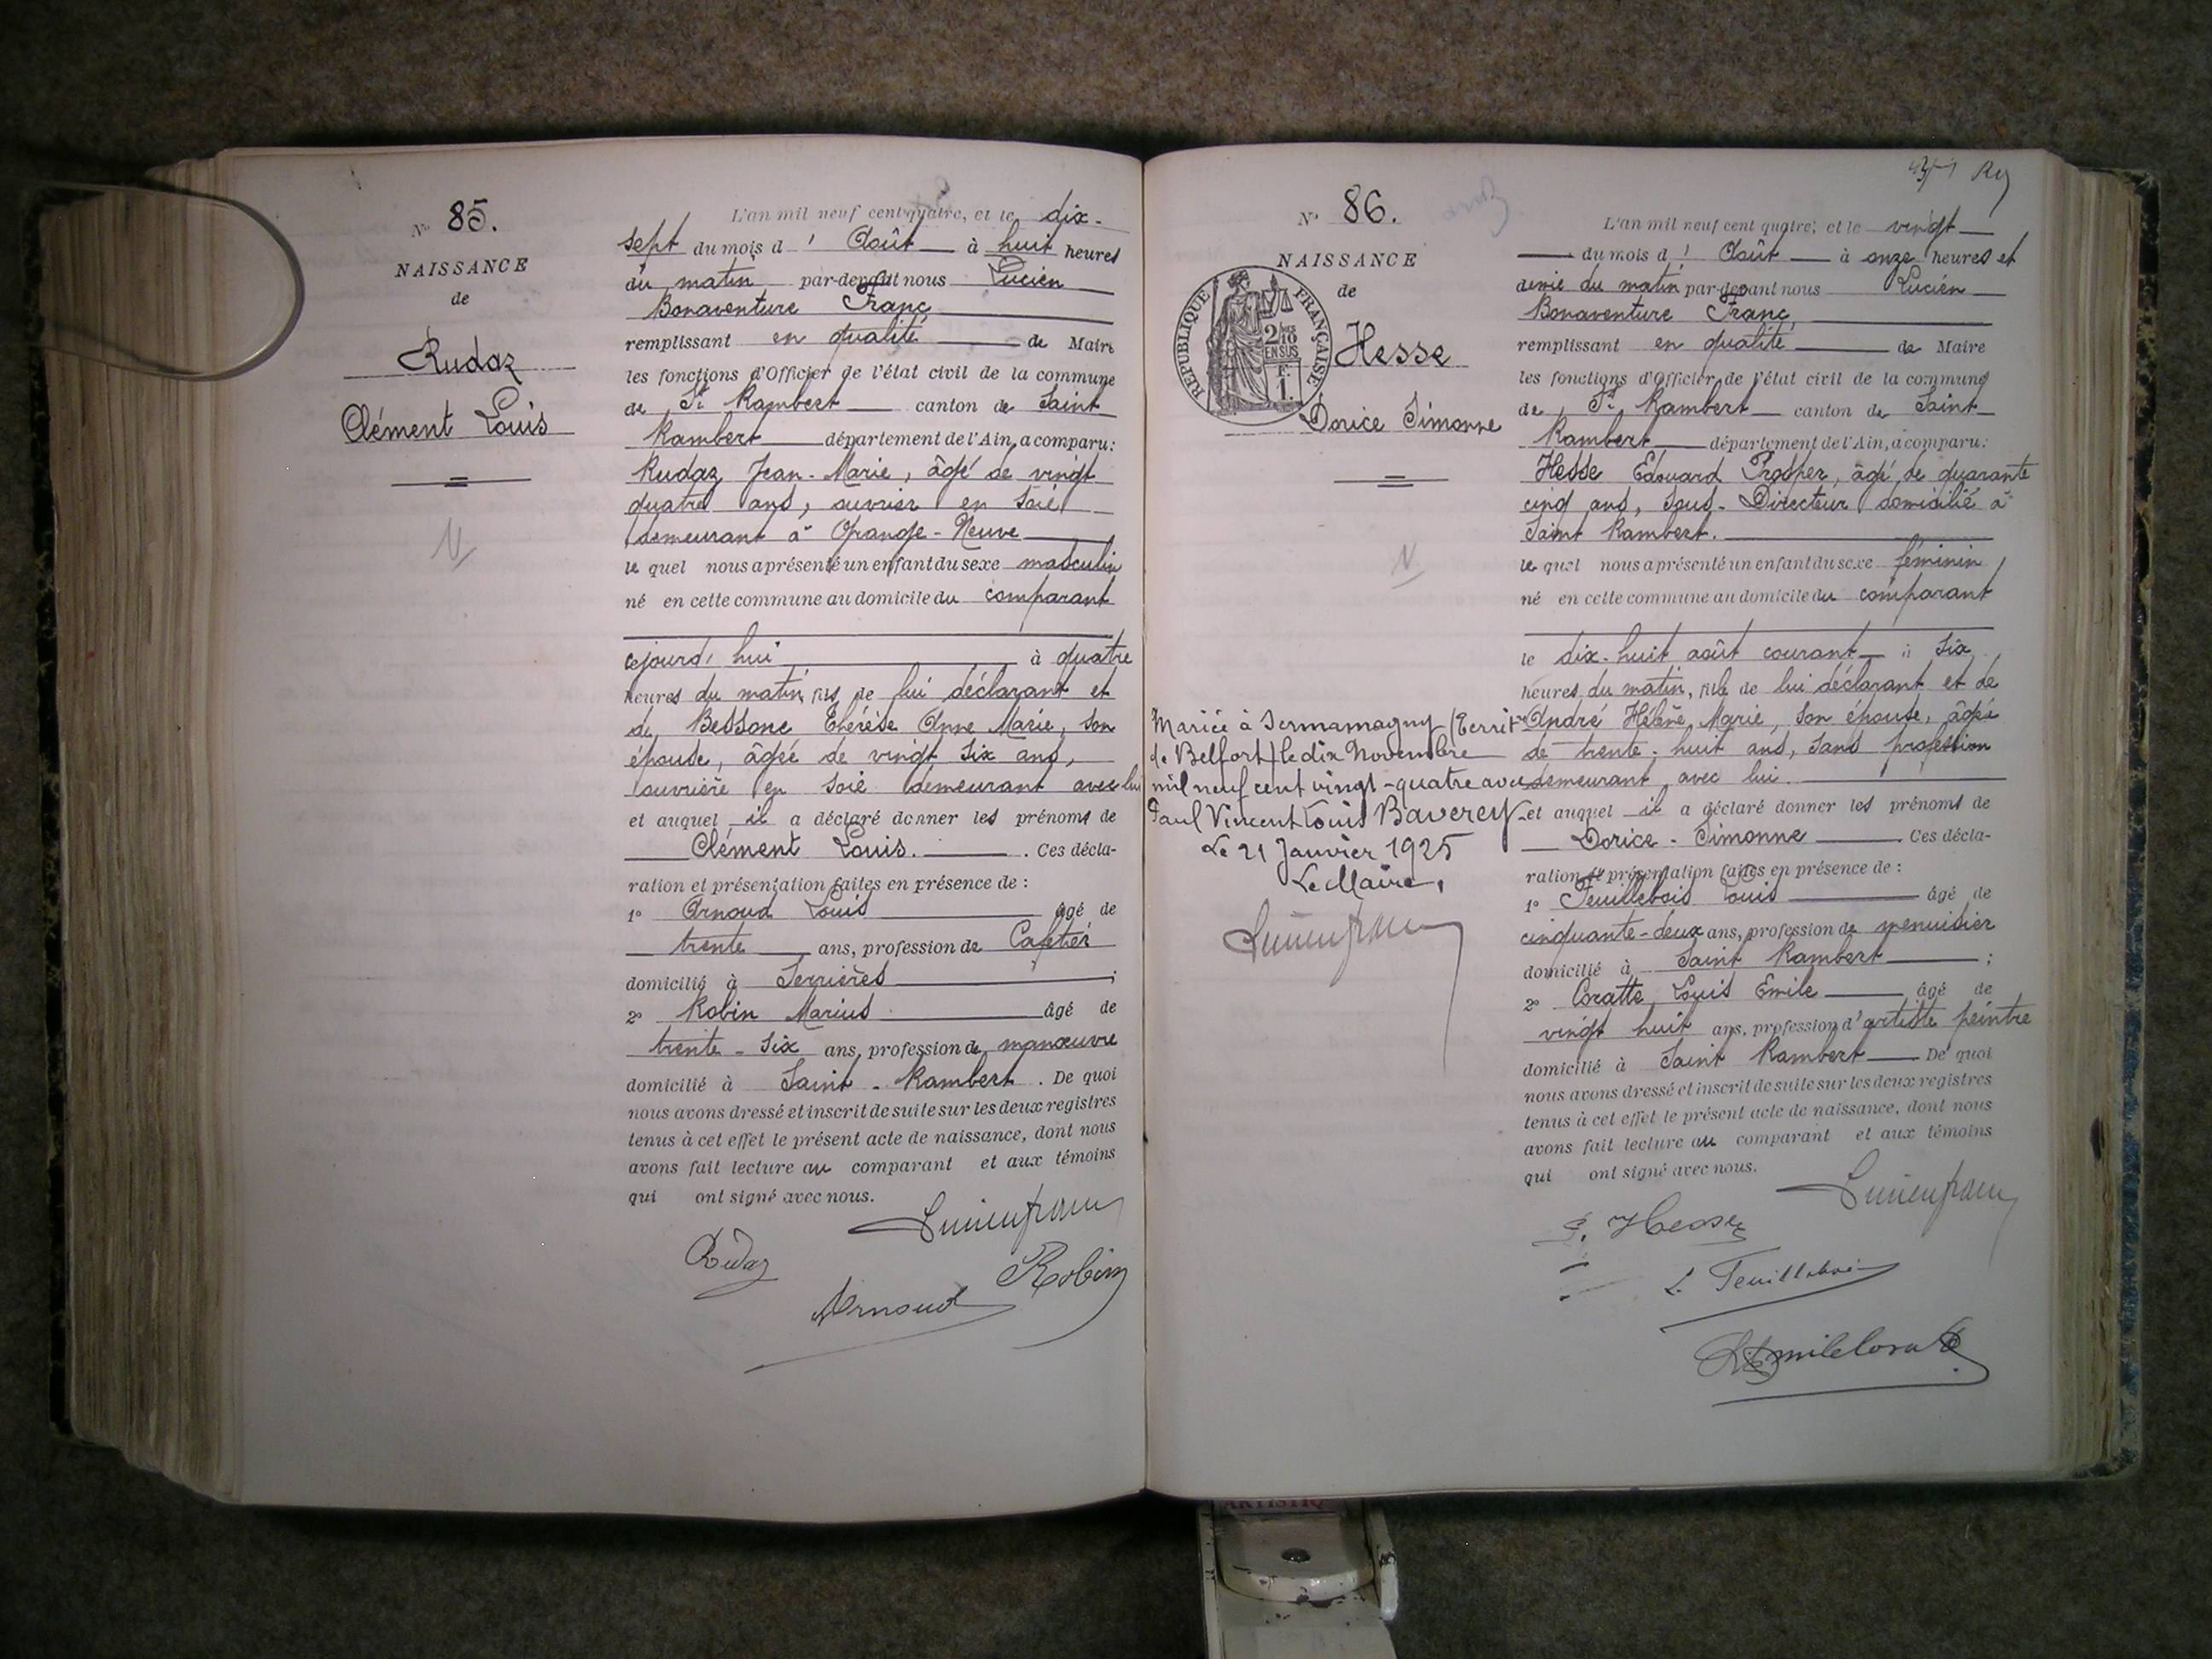 N° 85.
NAISSANCE
de
Rudaz
Clément Louis
N
L'an mil neuf cent quatre, et le dix-
sept du mois d' Août à huit heures
du matin par-devant nous Lucien
Bonaventure Franc
remplissant en qualité de Maire
les fonctions d'Officier de l'état civil de la commune
de St Rambert canton de Saint
Rambert département de l'Ain, a comparu:
Rudaz Jean-Marie, âgé de vingt
quatre ans, ouvrier en soie
demeurant à Grange-Neuve
le quel nous a présenté un enfant du sexe masculin
né en cette commune au domicile du comparant
cejourd'hui à quatre
heures du matin, fils de lui déclarant et
de Bessone Thérèse Anne Marie, son
épouse, âgée de vingt six ans,
ouvrière en soie demeurant avec lui
et auquel il a déclaré donner les prénoms de
Clément Louis. Ces décla-
ration et présentation faites en présence de :
1° Arnoud Louis âgé de
trente ans, profession de Cafetier
domicilié à Serrières ;
2° Robin Marius âgé de
trente-six ans, profession de manœuvre
domicilié à Saint-Rambert. De quoi
nous avons dressé et inscrit de suite sur les deux registres
tenus à cet effet le présent acte de naissance, dont nous
avons fait lecture au comparant et aux témoins
qui ont signé avec nous.
Lucien franc
Rudaz
Robin
Arnoud
N° 86.
NAISSANCE
de
REPUBLIQUE FRANÇAISE
2/10 EN SUS
F. 1.
Hesse
Dorice Simonne
N
Mariée à Sermamagny (Territre
de Belfort) le dix Novembre
mil neuf cent vingt-quatre avec
Paul Vincent Louis Baverey
Le 21 Janvier 1925
Le Maire,
Lucien franc
L'an mil neuf cent quatre, et le vingt
du mois d' Août à onze heures et
demie du matin par-devant nous Lucien
Bonaventure Franc
remplissant en qualité de Maire
les fonctions d'Officier de l'état civil de la commune
de St Rambert canton de Saint
Rambert département de l'Ain, a comparu:
Hesse Edouard Prosper, âgé de quarante
cinq ans, Sous-Directeur domicilié à
Saint Rambert.
le quel nous a présenté un enfant du sexe féminin
né en cette commune au domicile du comparant
le dix-huit août courant à six
heures du matin, fille de lui déclarant et de
André Hélène Marie, son épouse, âgée
de trente-huit ans, sans profession
demeurant avec lui.
et auquel il a déclaré donner les prénoms de
Dorice-Simonne Ces décla-
ration et présentation faites en présence de :
1° Feuillebois Louis âgé de
cinquante-deux ans, profession de menuisier
domicilié à Saint Rambert ;
2° Coratte Louis Emile âgé de
vingt huit ans, profession d'artiste peintre
domicilié à Saint Rambert De quoi
nous avons dressé et inscrit de suite sur les deux registres
tenus à cet effet le présent acte de naissance, dont nous
avons fait lecture au comparant et aux témoins
qui ont signé avec nous.
Lucien franc
Hesse
L. Feuillebois
ARTISTIQ